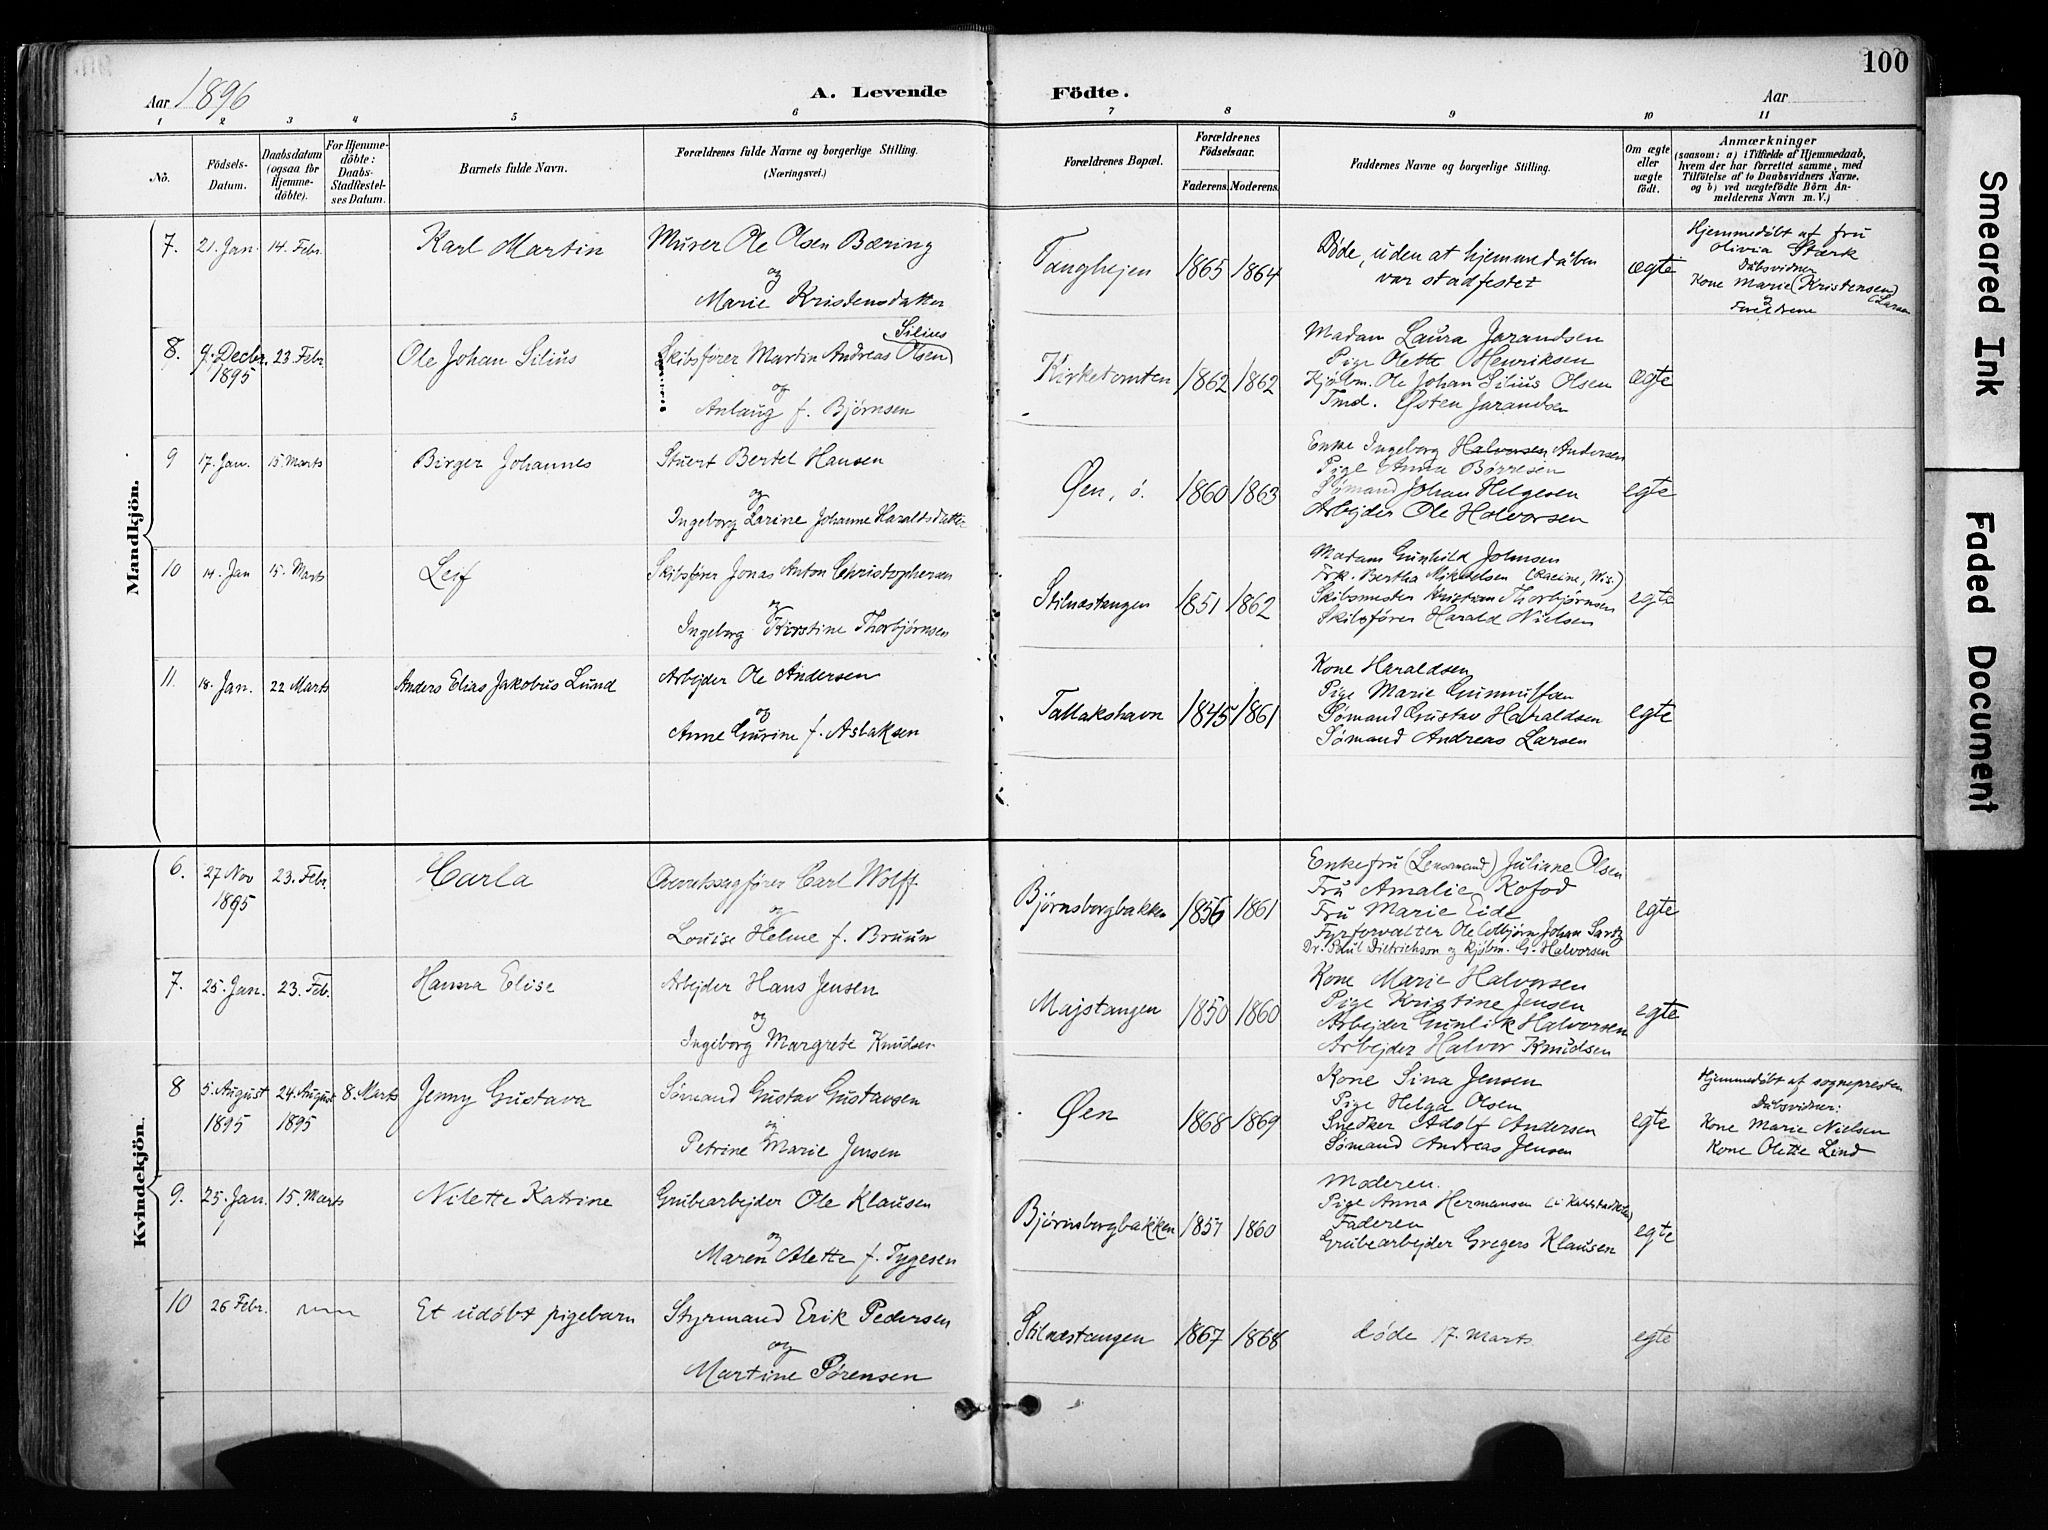 100
Aar 1896
A. Levende Födte.
Aar
1 2 3 4 5 6 7 8 9 10 11
No.
Födsels-Datum.
Daabsdatum (ogsaa for Hjemmedöbte).
For Hjemmedöbte: Daabs-Stadfæstelses Datum.
Barnets fulde Navn.
Forældrenes fulde Navne og borgerlige Stilling.
(Næringsvei.)
Forældrenes Bopæl.
Forældrenes Födselsaar.
Faderens. Moderens.
Faddernes Navne og borgerlige Stilling.
Om ægte eller uægte födt.
Anmærkninger
(saasom: a) i Tilfælde af Hjemmedaab, hvem der har forrettet samme, med Tilföielse af to Daabsvidners Navne, og b) ved uægtefödte Börn Anmelderens Navn m. V.)
Mandkjön.
7. 21. Jan. 14. Febr. Karl Martin
Murer Ole Olsen Bæring
og
Marie Kristensdatter
Tanghejen 1865 1864
Døde, uden at hjemmedåben
var stadfestet
ægte
Hjemmedøbt af fru
Olivia Stærk
Dåbsvidner
Kone Marie (Kristensen)
Larsen
og
Foreldrene
8. 9. Decbr. 1895 23. Febr. Ole Johan Silius
Silius
Skibsfører Martin Andreas Olsen
og
Anlaug f. Bjørnsen
Kirketomten 1862 1862
Madam Laura Jarandsen
Pige Olette Henriksen
Kjøbm. Ole Johan Silius Olsen
Tmd. Østen Jarandsen
ægte
9 17. Jan. 15. Marts Birger Johannes
Stuert Bertel Hansen
og
Ingeborg Larine Johanne Haraldsdatter
Øen, ö. 1860 1863
Enke Ingeborg Halvorsen Andersen
Pige Anna Børresen
Sømand Johan Helgesen
Arbejder Ole Halvorsen
egte
10 14. Jan 15. Marts Leif
Skibsfører Jonas Anton Christophersen
og
Ingeborg Kirstine Thorbjørnsen
Stilnæstangen 1851 1862
Madam Gunhild Johnsen
Frk. Bertha Mikkelsen (Racine, Wis.)
Skibsmester Kristian Thorbjørnsen
Skibsfører Harald Nielsen
egte
11. 18. Jan. 22 Marts Anders Elias Jakobus Lund
Arbejder Ole Andersen
og
Anne Gurine f. Aslaksen
Tallakshavn 1845 1861
Kone Haraldsen
Pige Marie
Sømand Gustav Haraldsen
Sømand Andreas Larsen
egte
Kvindekjön.
6. 27 Nov 1895 23. Febr. Carla
Overretssagfører Carl Wolff
og
Louise Helme f. Bruun
Bjørnsborgbakken 1856 1861
Enkefru (Lensmand) Juliane Olsen
Fru Amalie Kofod
Fru Marie Eide
Fyrforvalter Ole Johan
Dr. Paul Dietrichson og kjøbm. G. Halvorsen
egte
7. 25. Jan. 23. Feb. Hanna Elise
Arbejder Hans Jensen
og
Ingeborg Margrete Knudsen
Majstangen 1850 1860
Kone Marie Halvorsen
Pige Kristine Jensen
Arbejder Gunlik Halvorsen
Arbejder Halvor Knudsen
egte
8 5. August 1895 24. August 1895 8. Marts Jenny Gustava
Sømand Gustav Gustavsen
og
Petrine Marie Jensen
Øen 1868 1869
Kone Sina Jensen
Pige Helga Olsen
Snedker Adolf Andersen
Sømand Andreas Jensen
egte
Hjemmedøbt af sognepresten
Dåbsvidner:
Kone Marie Nielsen
Kone Olette Lind
9. 25. Jan. 15. Marts Nilette Katrine
Grubearbejder Ole Klausen
og
Maren Alette f. Tygesen
Bjørnsborgbakken 1857 1860
Moderen.
Pige Anna Hermansen
Faderen
Grubearbejder Gregers Klausen
egte
10 26 Febr. Et udøbt pigebarn
Styrmand Erik Pedersen
og
Martine Sørensen
Stilnæstangen 1867 1868
Døde 17. Marts
egte
Smeared Ink
Faded Document